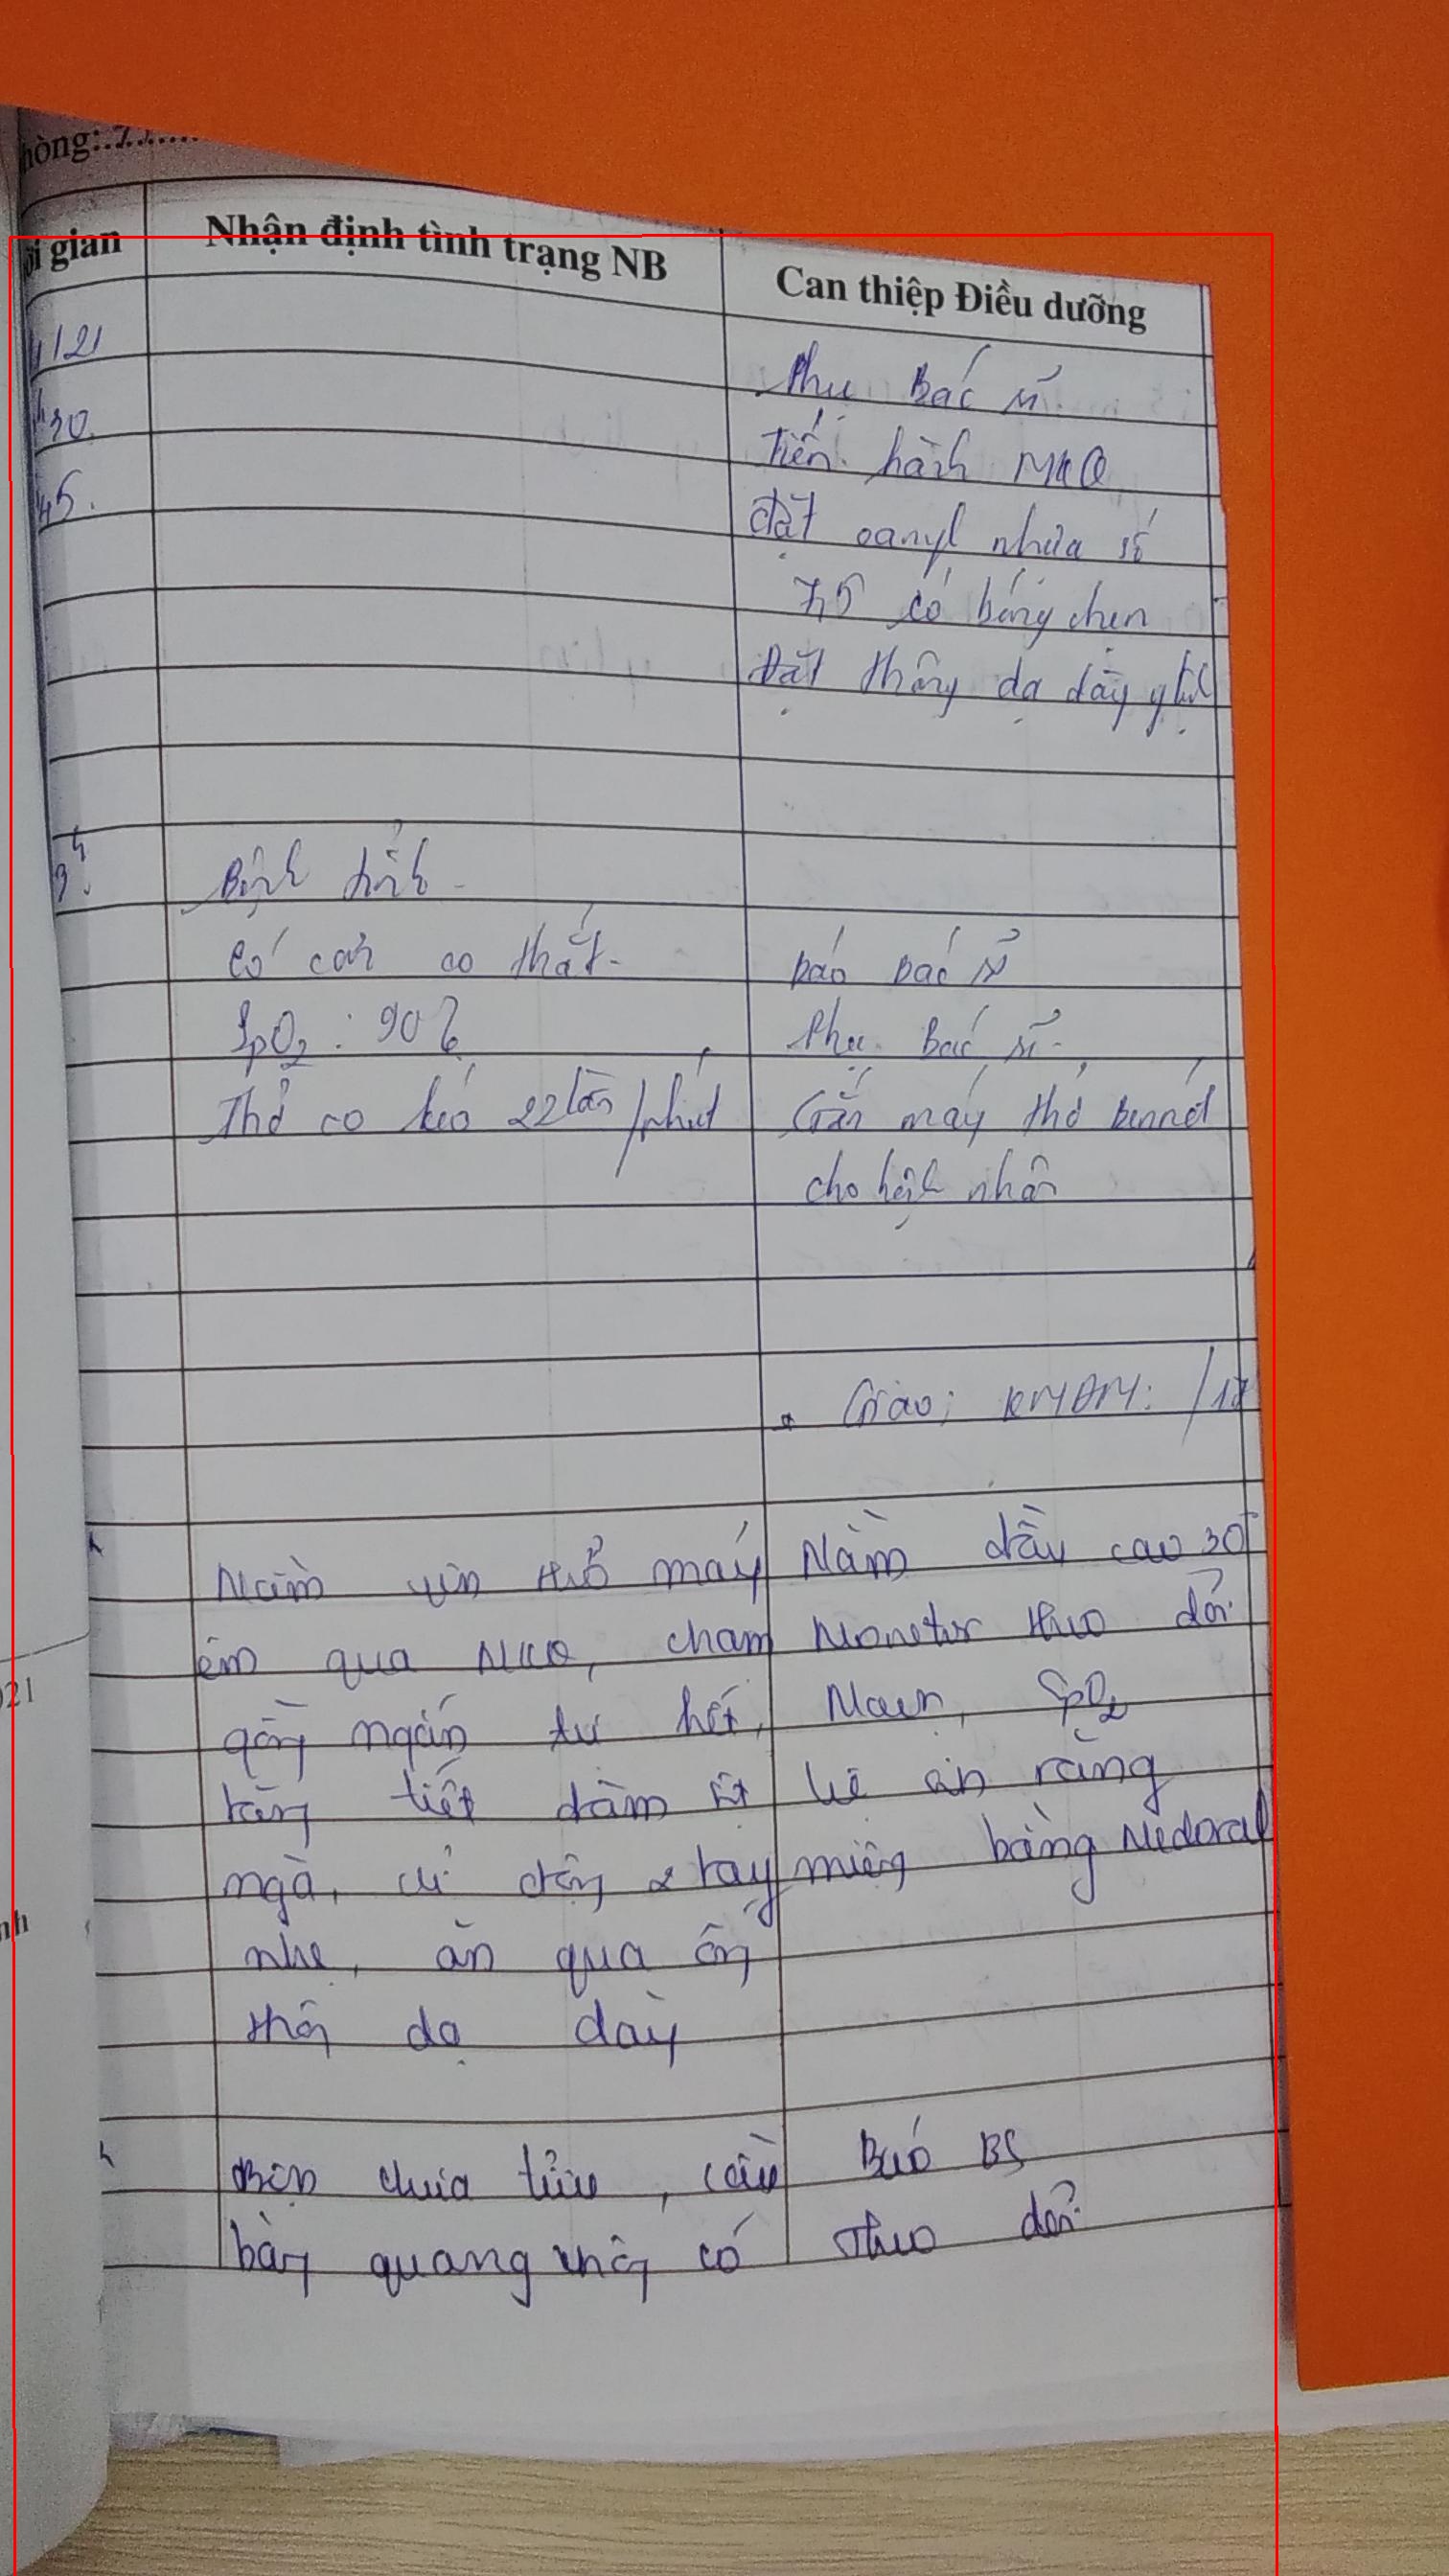 hòng:.7.......
ời gian Nhận định tình trạng NB Can thiệp Điều dưỡng
/21 Phụ Bác sĩ
h30. Tiến hành MKQ
45. đặt canyl nhựa số
7,5 có bóng chèn
Đặt thông dạ dày
9h Bệnh tỉnh
Có cơn co thắt. Báo bác sĩ
SpO2 : 90% Phụ Bác sĩ.
Thở co kéo 22 lần/phút Gắn máy thở bennet
cho bệnh nhân
Giao:
h Nằm yên thở máy Nằm đầu cao 30°
êm qua MKQ, chấm Monetor theo dõi
ngán tư hết, Mạch, SpO2
tăng tiết đàm ít Vê sin răng
ngà, cử động 2 tay miệng bằng Medoral
nhẹ, ăn qua ống
thông dạ dày
h Bọn chưa tiểu, cầu Báo BS
bàng quang không có Theo dõi
021
nh